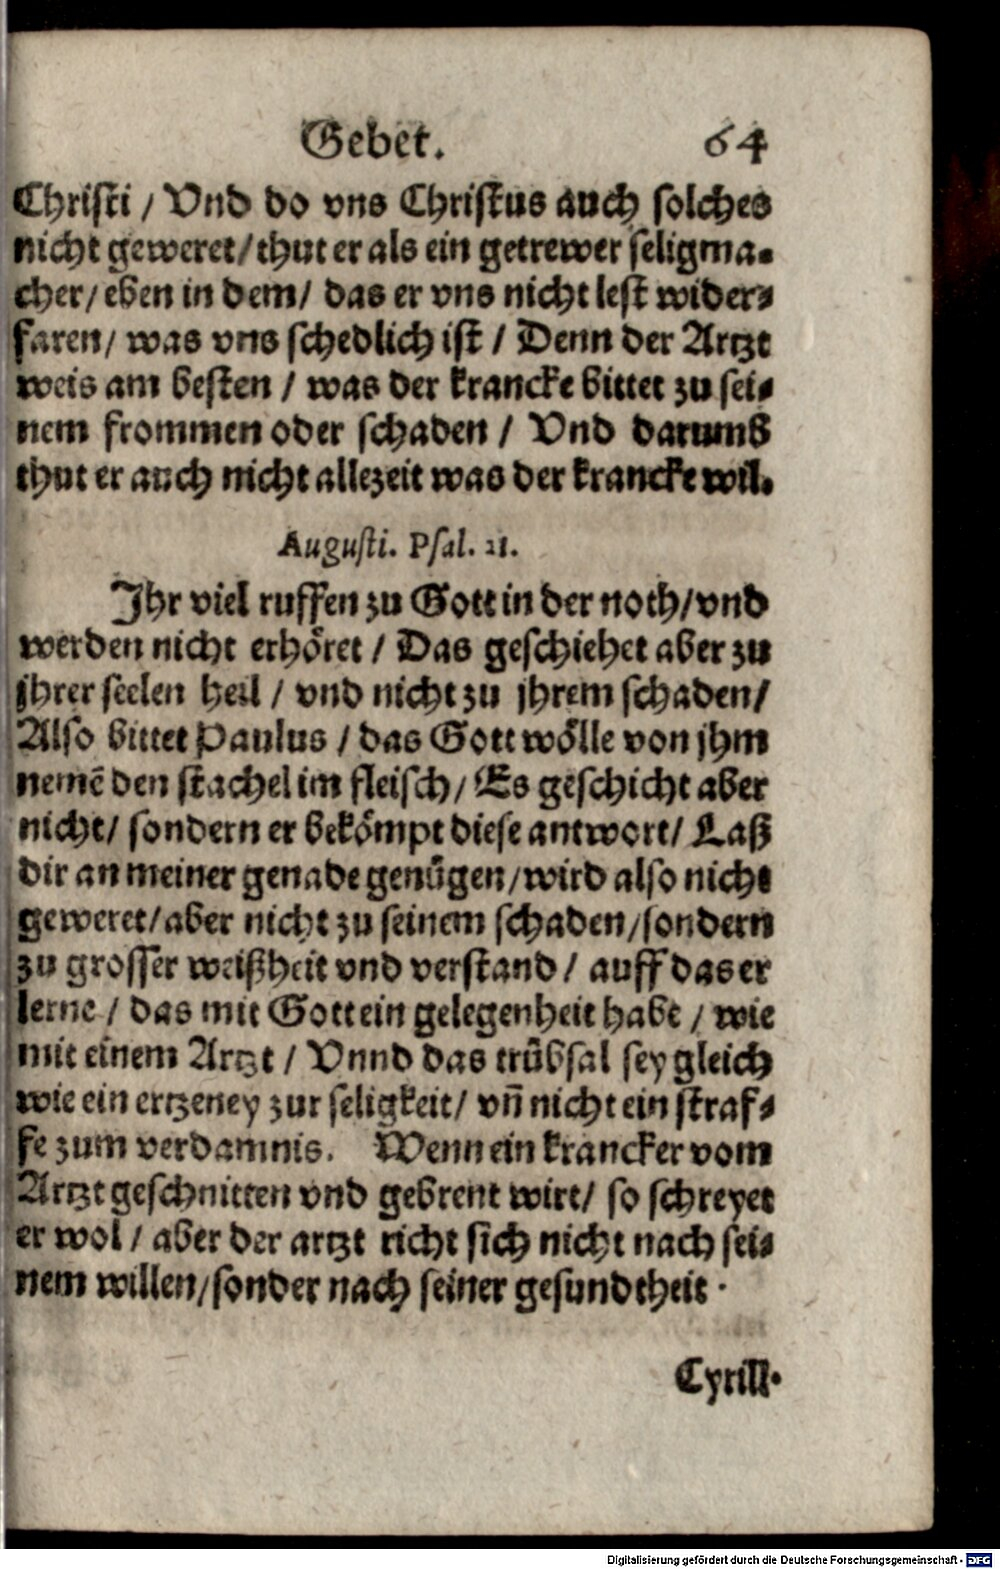 Gebet. 64
Christi / Vnd do vns Christus auch solches
nicht geweret / thut er als ein getrewer seligma-
cher / eben in dem / das er vns nicht lest wider-
faren / was vns schedlich ist / Denn der Artzt
weis am besten / was der krancke bittet zu sei-
nem frommen oder schaden / Vnd darumb
thut er auch nicht allezeit was der krancke wil.
Augusti. Psal. 21.
Jhr viel ruffen zu Gott in der noth / vnd
werden nicht erhöret / Das geschiehet aber zu
jhrer seelen heil / vnd nicht zu jhrem schaden /
Also bittet Paulus / das Gott wölle von jhm
nemē den stachel im fleisch / Es geschicht aber
nicht / sondern er bekömpt diese antwort / Laß
dir an meiner genade genügen / wird also nicht
geweret / aber nicht zu seinem schaden / sondern
zu grosser weißheit vnd verstand / auff das er
lerne / das mit Gott ein gelegenheit habe / wie
mit einem Artzt / Vnnd das trübsal sey gleich
wie ein ertzeney zur seligkeit / vn̄ nicht ein straf-
fe zum verdamnis. Wenn ein krancker vom
Artzt geschnitten vnd gebrent wirt / so schreyet
er wol / aber der artzt richt sich nicht nach sei-
nem willen / sonder nach seiner gesundtheit .
Cyrill.
Digitalisierung gefördert durch die Deutsche Forschungsgemeinschaft - DFG